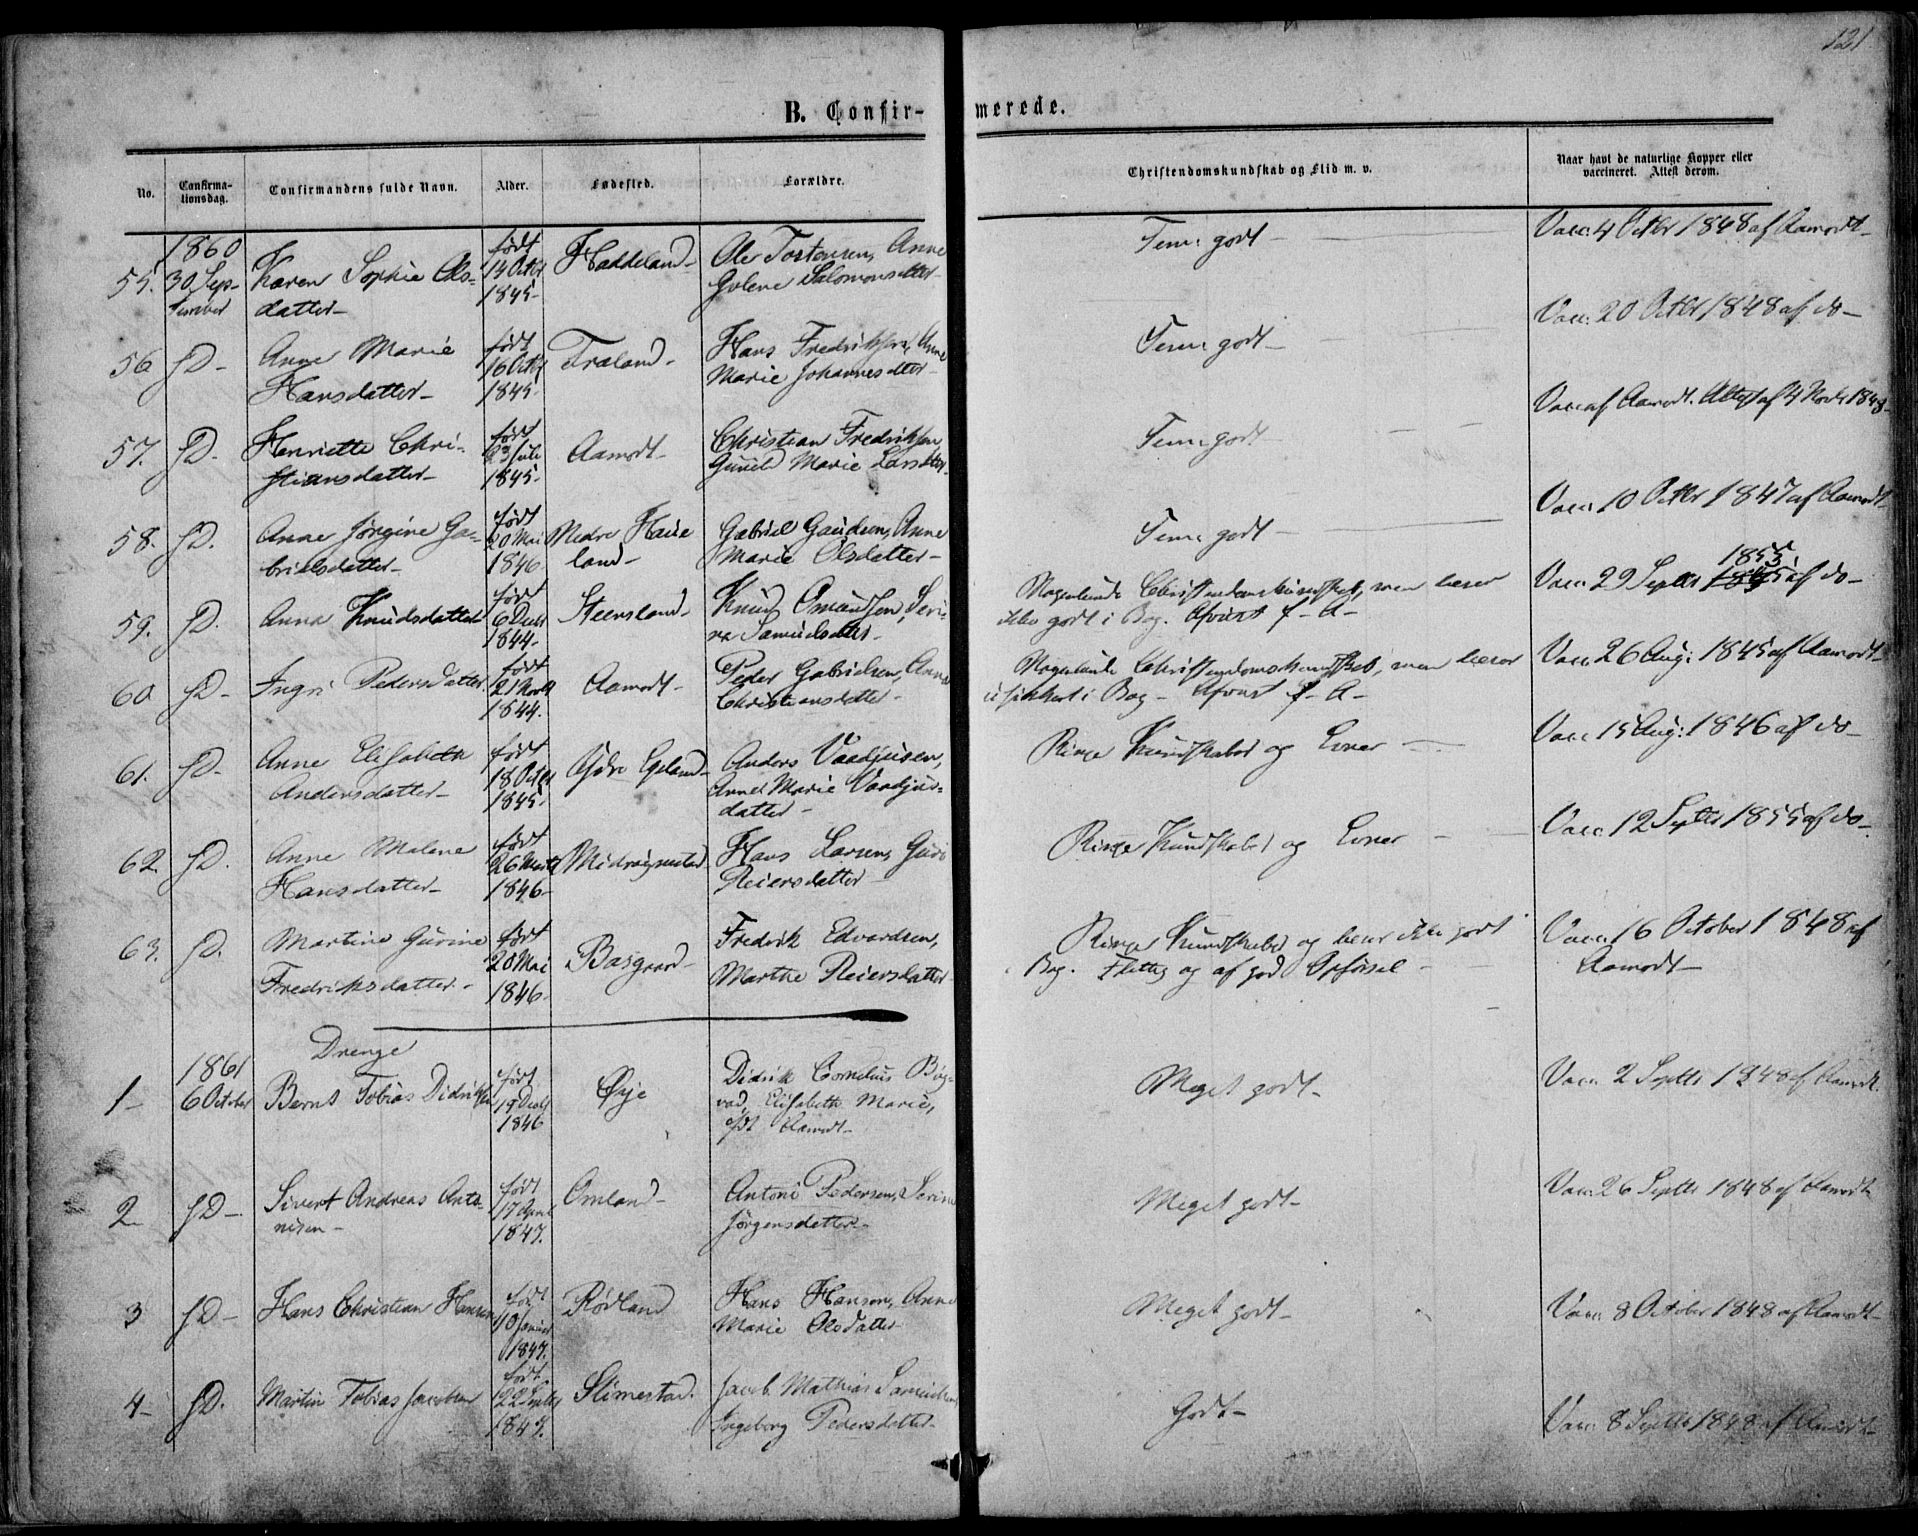 121
B. Confir- merede.
No. Confirma-tionsdag. Confirmandens fulde Navn. Alder. Fødested. Forældre. Christendomskundskab og Flid m. v. Naar havt de naturlige Kopper eller vaccineret. Attest derom.
1860
55. 30 Sep-tember Karen Sophie Ols-datter- født 14 Octbr 1845- Haddeland- Ole Tostensen, Anne Golene Salomonsdtter- Tem: godt- Vacc: 4 Octbr 1848 af Aamodt-
56. sD- Anne Marie Hansdatter- født 16 Octbr 1845- Traland- Hans Fredriksen, Anne Marie Johannesdtter- Tem: godt- Vacc: 20 Octbr 1848 af do-
57. sD. Henriette Chri-stiansdatter- født 23 Juli 1845- Aamodt- Christian Fredriksen, Gunild Marie Larsdtter- Tem: godt- Vacc af Aamodt. Attest af 4 Novbr 1848-
58. sD. Anne Jørgine Ga-brielsdatter- født 20 Mai 1846- Nedre Haue land- Gabriel Gaudsen, Anne Marie Olsdatter- Tem: godt- Vacc: 10 Octbr 1847 af Aamodt-
59. sD. Anna Knudsdatter født 6 Decbr 1844- Steensland- Knud Omundsen, Seri-ne Samuelsdtter- Nogenlunde Christendomskundskab, men læser ikke godt i Bog. Afvist f- A- Vacc: 29 Septbr 1855 af do-
60. sD- Ingri Pedersdatter født 21 Novbr 1844. Aamodt- Peder Gabrielsen, Anne Christiansdatter- Nogenlunde Christendomskundskab, men læser usikkert i Bog- Afvist f- A- Vacc: 26 Aug: 1845 af Aamodt-
61. sD- Anne Elisabeth Andersdatter- født 18 Octbr 1845- Ydre Egeland- Anders Vaadjusen, Anne Marie Vaadjus-datter- Ringe Kundskaber og Evner- Vacc: 15 Aug: 1846 af do-
62. sD. Anne Malene Hansdatter- født 26 Marts 1846- Hans Larsen, Guri Reiersdatter- Ringe Kundskaber og Evner- Vacc: 12 Septbr 1855 af do-
63. sD. Martine Gurine Fredriksdatter- født 20 Mai 1846- Basgaard- Fredrik Edvardsen, Marthe Reiersdatter Ringe Kundskaber og læser ikke godt i Bog. Flittig og af god Opførsel- Vacc: 16 October 1848 af Aamodt-
Drenge
1861
1- 6 October Bernt Tobias Didriksen født 19 Decbr 1846 Øyje Didrik Cornelius Bög-vad, Elisabeth Marie, født Aamodt- Meget godt- Vacc: 2 Septbr 1848 af Aamodt.
2. sD- Sivert Andreas Anto-nisen- født 17 April 1847. Omland- Antoni Pedersen, Serine Jørgensdatter- Meget godt- Vacc: 26 Septbr 1848 af Aamodt
3 sD- Hans Christian Hansen født 10 Januar 1847. Rødland Hans Hansen, Anne Marie Olsdatter Meget godt- Vacc: 8 October 1848 af Aamodt-
4- sD. Martin Tobias Jacobsen født 22 Septbr 1847. Slimestad. Jacob Mathias Samuelsen, Ingeborg Pedersdatter- Godt- Vacc: 8 Septbr 1848 af Aamodt-